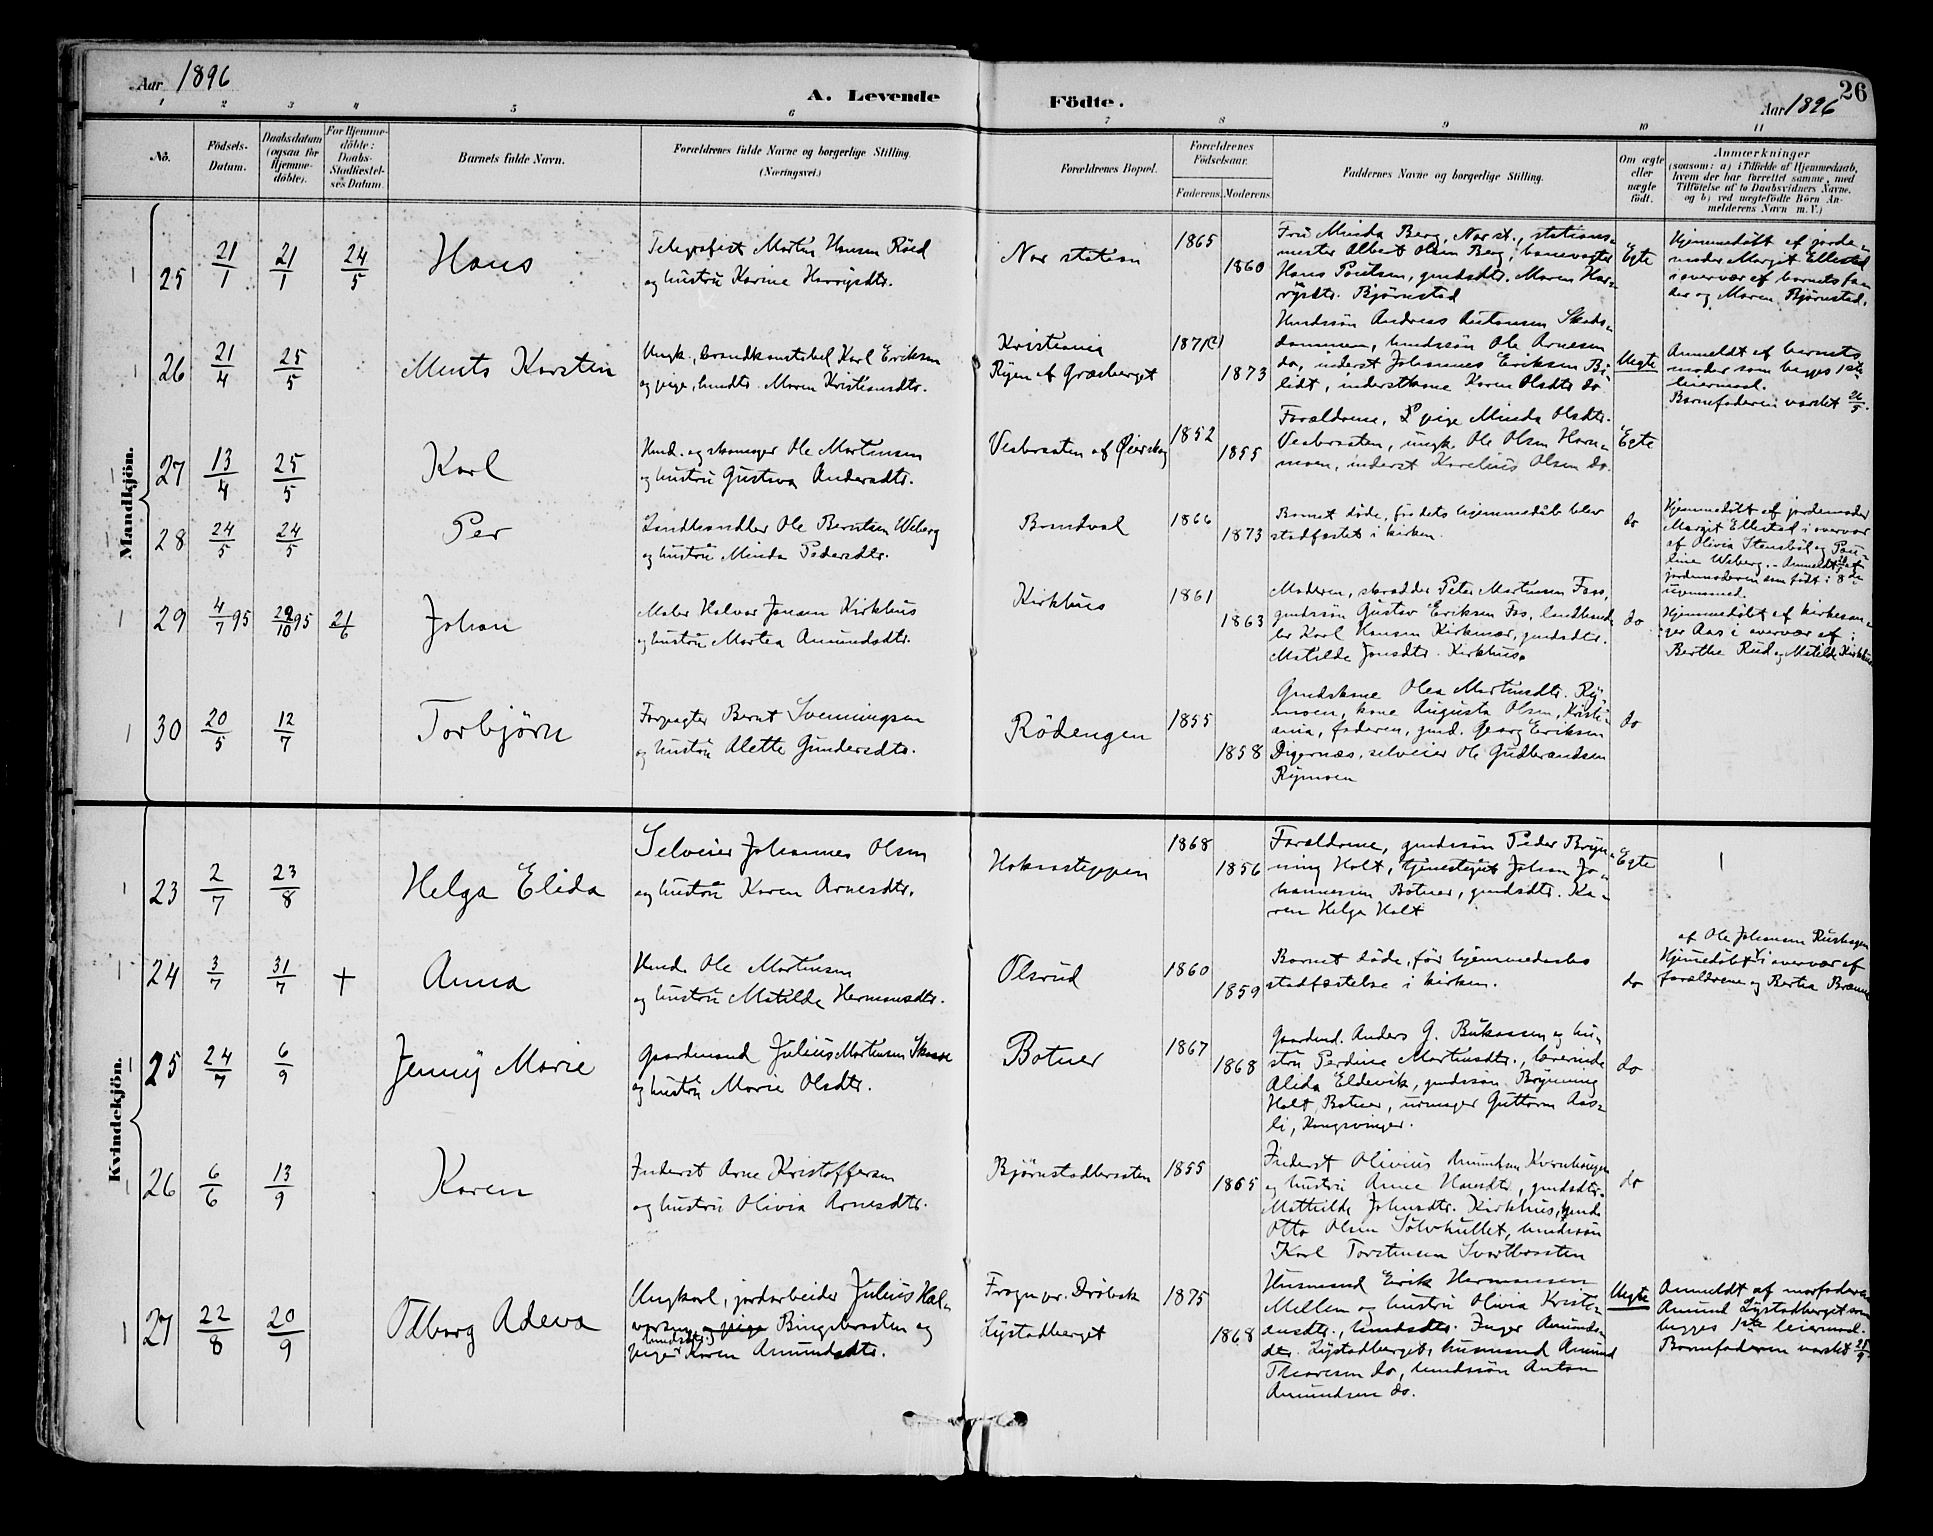 Aar 1896
A. Levende
Födte.
Aar 1896
26
1 2 3 4 5 6 7 8 9 10 11
No.
Födsels-
Datum.
Daabsdatum
(ogsaa for
Hjemme-
döbte).
For Hjemme-
döbte:
Daabs-
Stadfæstel-
ses Datum.
Barnets fulde Navn.
Forældrenes fulde Navne og borgerlige Stilling.
(Næringsvei.)
Forældrenes Bopæl.
Forældrenes
Födselsaar.
Faderens. Moderens.
Faddernes Navne og borgerlige Stilling.
Om ægte
eller
uægte
födt.
Anmærkninger
(saasom: a) i Tilfælde af Hjemmedaab,
hvem der har forrettet samme, med
Tilföielse af to Daabsvidners Navne.
og b) ved uægtefödte Börn An-
melderens Navn m. V.)
Mandkjön.
25 21/1 21/1 24/5 Hans
Telegrafist Martin Hansen Röed
og hustru Karine Harrysdtr.
Nor station
1865
1860
Fru Minda Berg, Nor st., stations-
mester Albert Olsen Berg, banevogter
Hans Poulsen, gmdsdtr. Maren Har-
rysdtr. Bjørnstad
Egte
Hjemmedøbt af jorde-
moder Margit Ellestad
i overvær af barnets fa-
der og Maren Bjørnstad.
26 21/4 25/5 Ments Karsten
Ungk., brandkonstabel Karl Eriksen
og pige, hmdtr. Maren Kristiansdtr.
Kristiania
Ryen af Græsberget
1871
1873
Husmdssøn Andreas Antonsen Skods-
dammen, hmdssøn Ole Arnesen
do, inderst Johannes Eriksen Bi-
lidt, inderstkone Karen Olsdtr. do
Uegte
Anmeldt af barnets
moder som begges 1ste
leiermaal.
Barnefaderen varslet 26/5.
27 13/4 25/5 Karl
Hmd. og skomager Ole Martinsen
og hustru Gustava Andersdtr.
Vesbraaten af Øierskog
1852
1855
Forældrene, pige Minda Olsdtr.
Vesbraaten, ungk. Ole Olsen Horn-
moen, inderst Karelius Olsen do.
Egte
28 24/5 24/5 Per
Landhandler Ole Berntsen Weberg
og hustru Minda Pedersdtr.
Brandval
1866
1873
Barnet døde, før dets hjemmedåb blev
stadfæstet i kirken.
do
Hjemmedøbt af jordemoder
Margit Ellestad i overvær
af Olivia Stensbøl og Pau-
line Weberg. - Anmeldt af
jordemoderen som født i 8de
svgrsmaaned.
29 4/7 95 29/10 95 21/6 Johan
Maler Halvor Jonsen Kirkhus
og hustru Martea Amundsdtr.
Kirkhus
1861
1863
Moderen, skrædder Peter Martinsen Foss,
gmdssøn Gustav Eriksen Fos, landhand-
ler Karl Hansen Kirknær, gmdsdtr.
Matilde Jonsdtr. Kirkhus.
do
Hjemmedøbt af kirkesan-
ger Aas i overvær af
Berthe Rud og Matilde Kirkhus
30 20/5 12/7 Torbjørn
Forpagter Bernt Svenningsen
og hustru Alette Gundersdtr.
Rödengen
1855
1858
Gmdskone Olea Martinsdtr. Ry-
moen, kone Augusta Olsen, Kristi-
ania, faderen, gmd. Georg Eriksen
Digernæs, selveier Ole Gudbrandsen
Rymoen
do
Kvindekjön.
23 2/7 23/8 Helga Elida
Selveier Johannes Olsen
og hustru Karen Arnesdtr.
Hokaasteppen
1868
1856
Forældrene, gmdssøn Peder Bryn-
ning Holt, tjenestegut Johan Jo-
hannessen Botner, gmdsdtr. Ka-
ren Helga Holt
Egte
24 3/7 31/7 † Anna
Hmd. Ole Martinsen
og hustru Matilde Hermansdtr.
Olsrud
1860
1859
Barnet døde, før hjemmedaabs
stadfæstelse i kirken.
do
af Ole Johansen Rushagen
Hjemmedøbt i overvær af
forældrene og Bertea Brænne
25 24/7 6/9 Jenny Marie
Gaardmand Julius Martinsen
og hustru Marie Olsdtr.
Botner
1867
1868
Gaardmd. Anders G. Bukaasen og hu-
stru Perdine Martinsdtr., lærerinde
Alida Eldevik, gmdssøn Brynning
Holt, Botner, urmager Guttorm Aas-
li, Kongsvinger.
do
26 6/6 13/9 Karen
Inderst Arne Kristoffersen
og hustru Olivia Arnesdtr.
Bjørnstadbraaten
1855
1865
Inderst Olivius Amundsen Kværnhaugen
og hustru Anne Hansdtr., gmdsdtr.
Mathilde Johnsdtr. Kirkhus,
Otto Olsen Sölvhullet, hmdssøn
Karl Torstensen Svartbraaten
do
27 22/8 20/9 Olborg Adeva
Ungkarl, jordarbeider Julius Hal-
vorsen og pige Bingsbraaten og
pige, hmdsdtr. Karen Amundsdtr.
Frogn pr. Dröbak
Lystadberget
1875
1868
Husmand Erik Hermansen
Mellem og hustru Olivia Kristi-
ansdtr., hmdsdtr. Inger Amunds-
dtr. Lystadberget, husmand Amund
Thoresen do, hmdssøn Anton
Amundsen do.
Uegte
Anmeldt af morfaderen
Amund Lystadberget som
begges 1ste leiermaal.
Barnefaderen varslet 25/9